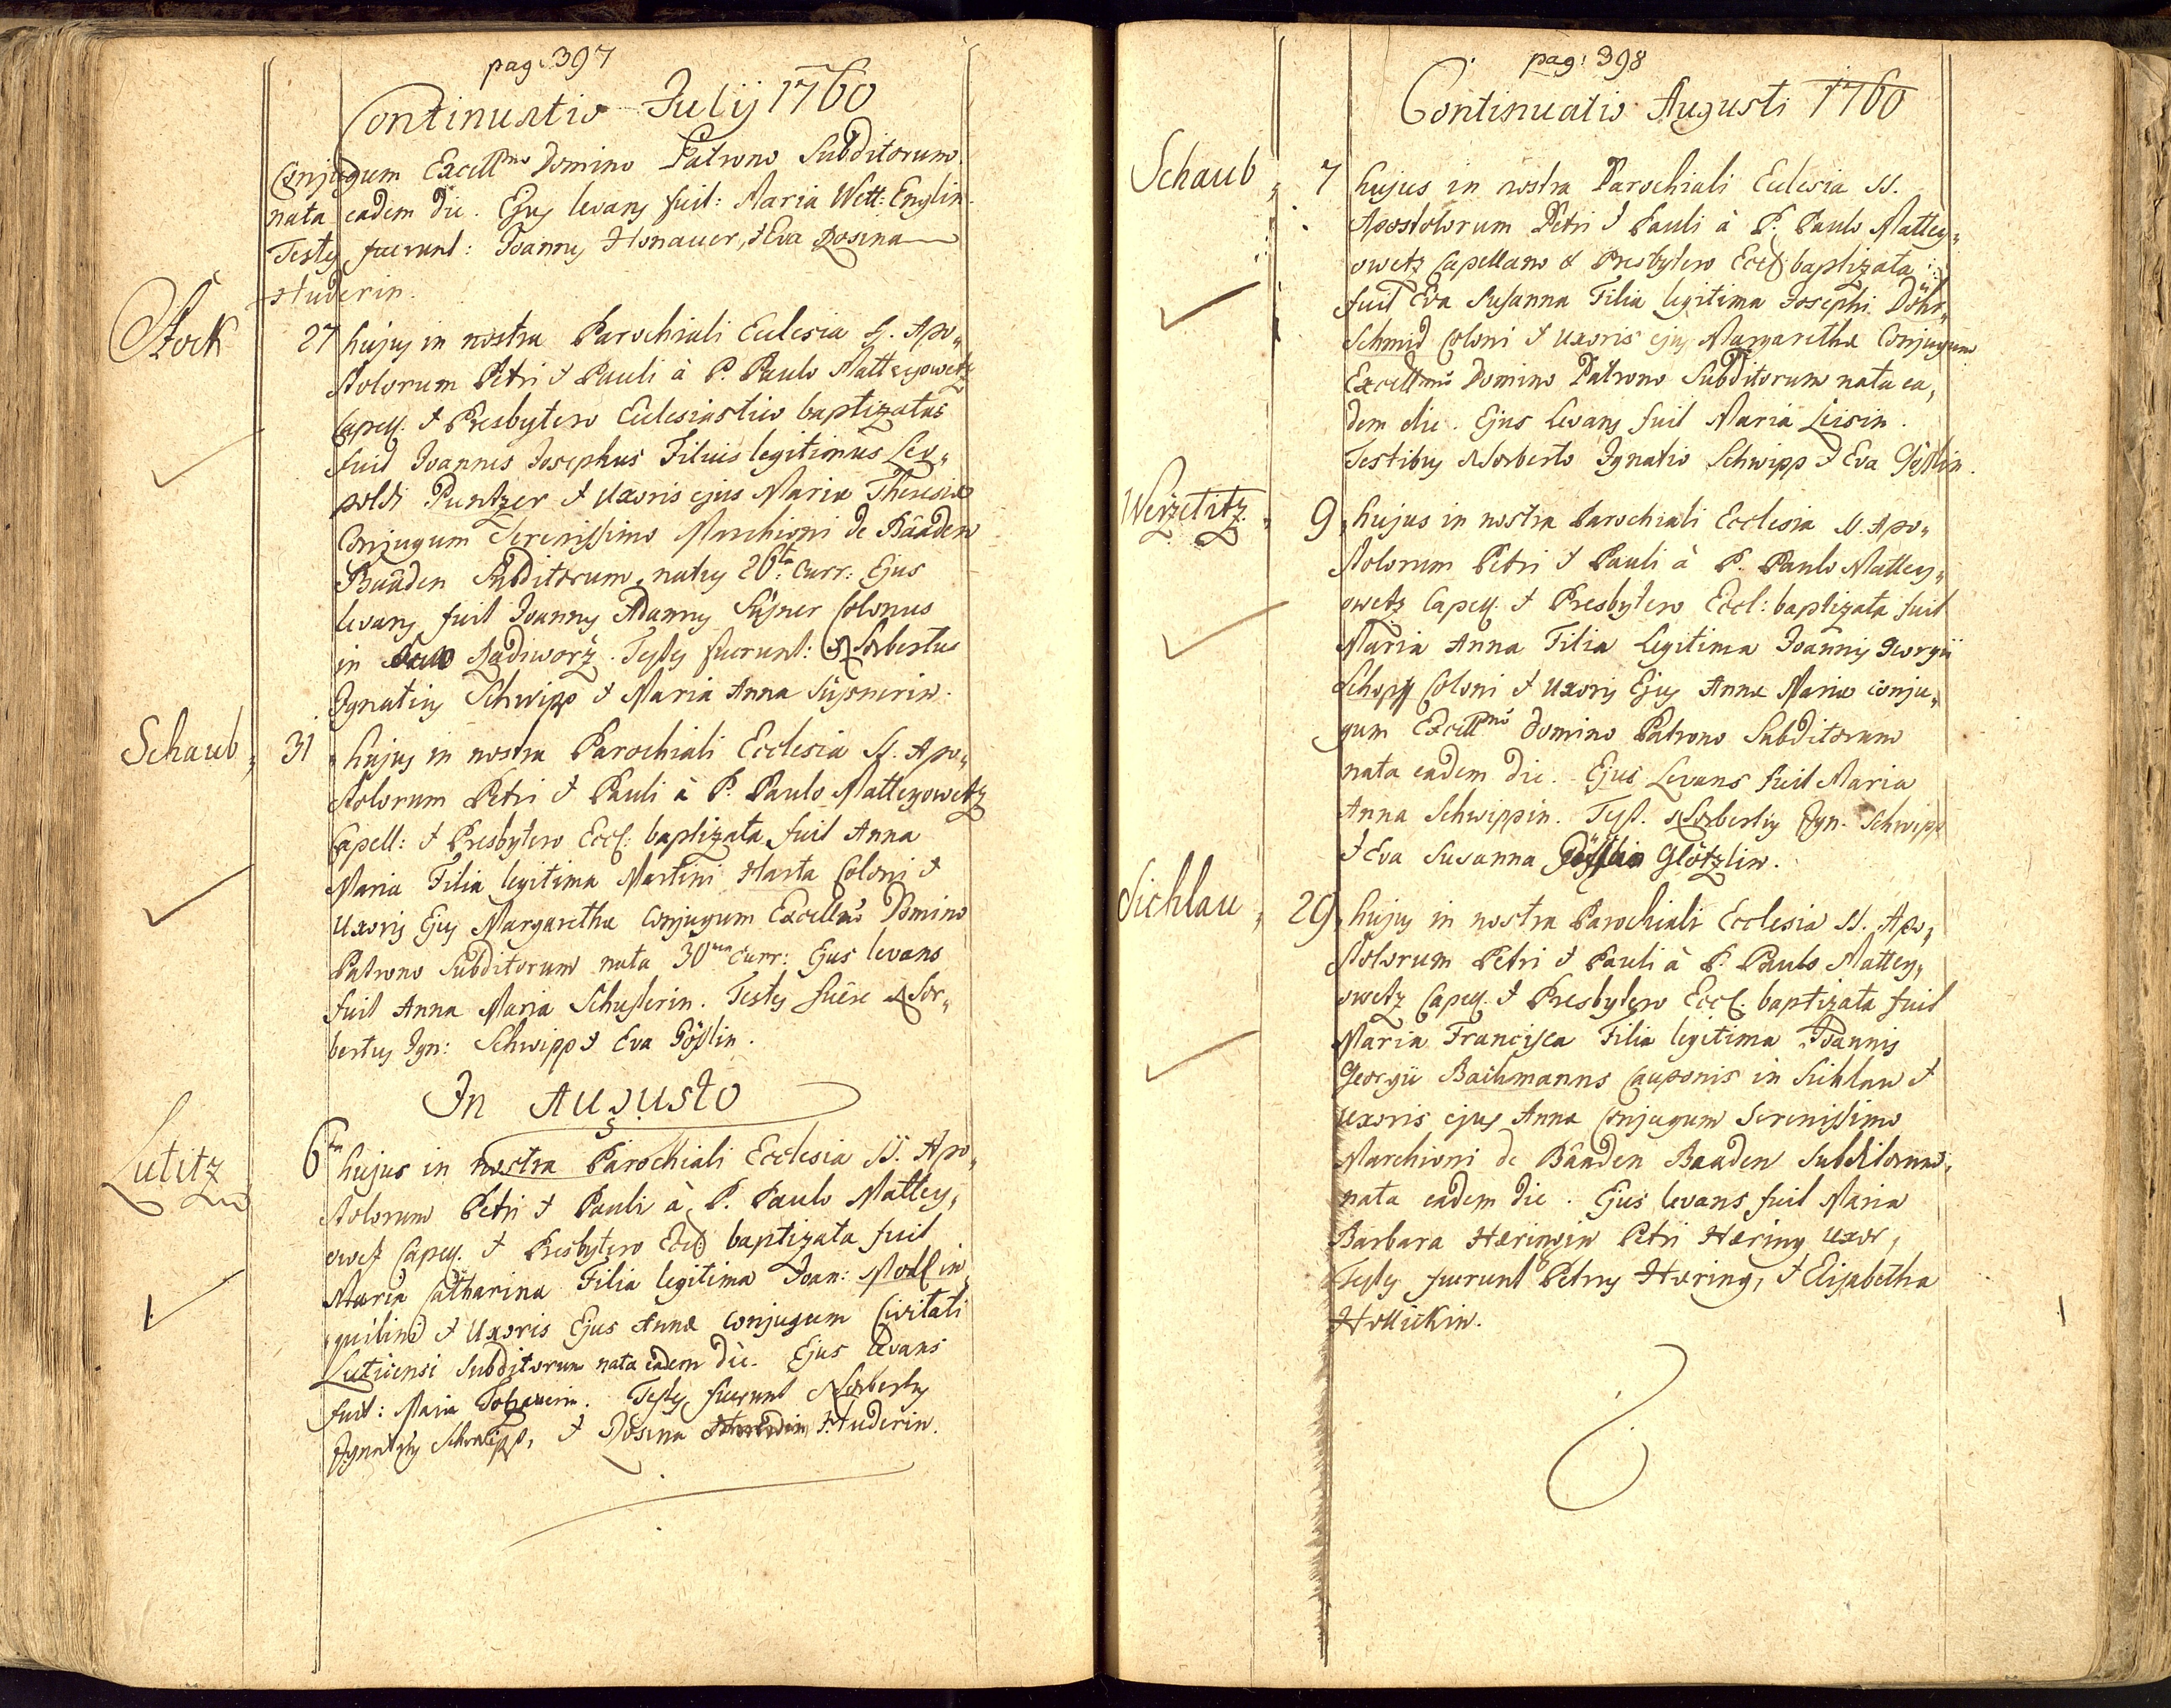 pag: 397
Continuatio Julij 1760
Conjugum Excell^mo Domino Patrono Subditorum
nata eadem die. Ejus levans fuit: Maria Wett: Englin.
Testes fuerunt: Joannes Honauer, & Eva Rosina
Huderin.
Stock 27 hujus in nostra Parochiali Ecclesia SS. Apo„
stolorum Petri & Pauli à P. Paulo Matteyowetz
Capell. & Presbytero Ecclesiastico baptizatus
fuit Joannes Josephus Filius legitimus Leo„
poldi Puntzer & Uxoris ejus Mariæ Theresiæ
Conjugum Serenissimo Marchioni de Bâaden
Baâden Subditorum, natus 26^ta: Curr: Ejus
levans fuit Joannes Adamus Süsner Colonus
in Radiworz. Testes fuerunt: Norbertus
Ignatius Schwipp & Maria Anna Süssnerin.
Schaub„ 31 „hujus in nostra Parochiali Ecclesia SS. Apo„
stolorum Petri & Pauli à P. Paulo Matteyowetz
Capell: & Presbytero Eccl: baptizata fuit Anna
Maria Filia legitima Martini Harta Coloni &
Uxoris Ejus Margarethæ Conjugum Excellmo Domino
Patrono Subditorum nata 30^ma Curr: Ejus levans
fuit Anna Maria Schusterin. Testes fuêre Nor„
bertus Ign: Schwipp & Eva Gösslin.
In Augusto
Lutitz 6^ta hujus in nostra Parochiali Ecclesia SS. Apo„
stolorum Petri & Pauli à P. Paulo Mattey„
owetz Capell. & Presbytero Eccl: baptizata fuit
Maria Catharina Filia legitima Joan: Modl in„
quilini & Uxoris Ejus Annæ conjugum Civitati
Luticensi Subditorum nata eadem die. Ejus levans
fuit: Maria. Testes fuerunt Norbertus
Ignatius Schwipp, & Rosina Huderin.
pag: 398
Continuatio Augusti 1760
Schaub„ 7 hujus in nostra Parochiali Ecclesia SS.
Apostolorum Petri & Pauli à P. Paulo Mattey„
owetz Capellano & Presbytero Eccl: baptizata
fuit Eva Susanna Filia legitima Josephi Döhr„
Schmid Coloni & Uxoris ejus Margarethæ Conjugum
Excellmo Domino Patrono Subditorum nata ea„
dem die. Ejus Levans fuit Maria Leisin.
Testibus Norberto Ignatio Schwipp & Eva Gösslin.
Werzetitz„ 9„ hujus in nostra Parochiali Ecclesia SS. Apo„
stolorum Petri & Pauli à P. Paulo Mattey„
owetz Capell. & Presbytero Eccl: baptizata fuit
Maria Anna Filia Legitima Joannis Georgii
Schopff Coloni & Uxoris Ejus Annæ Mariæ conju„
gum Excell^mo Domino Patrono Subditorum
nata eadem die. Ejus Levans fuit Maria
Anna Schwippin. Test. Norbertus Ign. Schwipp
& Eva Susanna Glötzlin.
Sichlau„ 29„ hujus in nostra Parochiali Ecclesia SS. Apo„
stolorum Petri & Pauli à P. Paulo Mattey„
owetz Capell. & Presbytero Eccl. baptizata fuit
Maria Francisca Filia legitima Joannis
Georgii Bachmanns Cauponis in Sichlau &
uxoris ejus Annæ Conjugum Serenissimo
Marchioni de Bâaden Baaden Subditorum,
nata eadem die. Ejus levans fuit Maria
Barbara Hæringin Petri Hæring uxor,
Testes fuerunt Petrus Hæring, & Elisabetha
Hollickin.